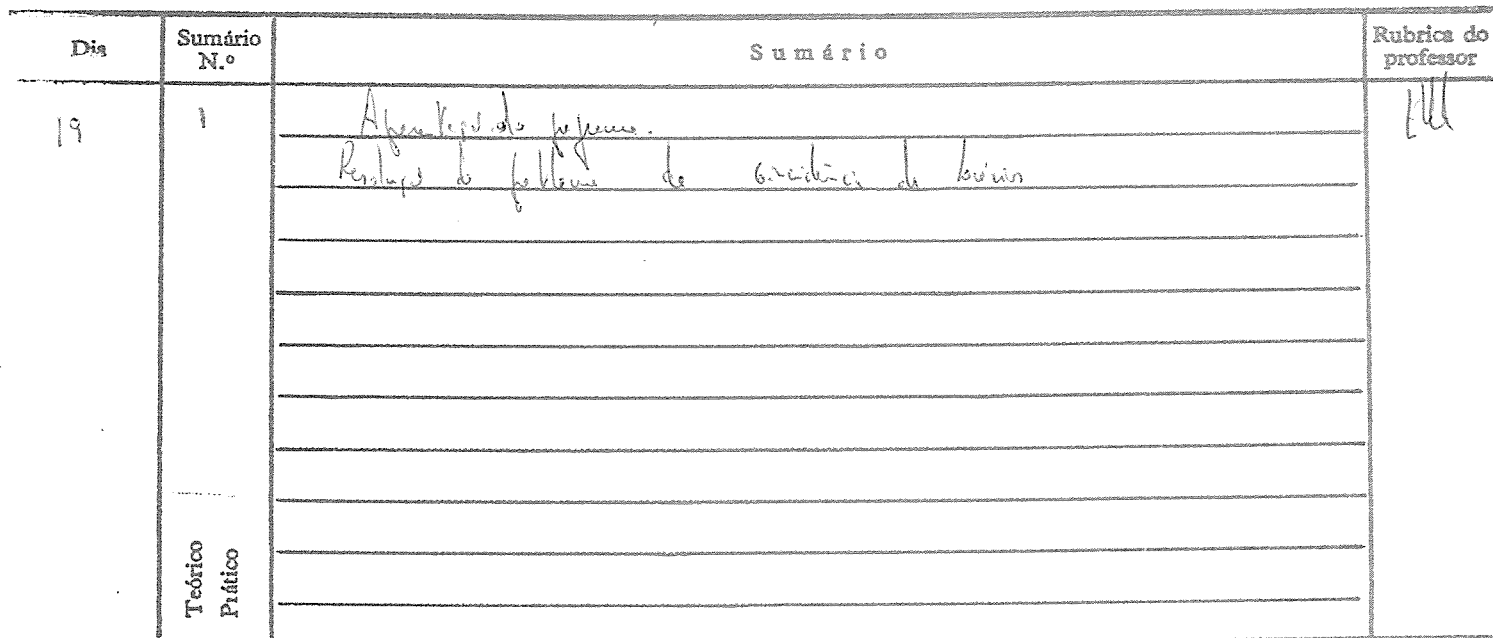 Dia
Sumário N.º
Sumário
Rubrica do professor
19
1
Apresentação do programa.
Resolução do problema de coincidência de horários
Teórico
Prático